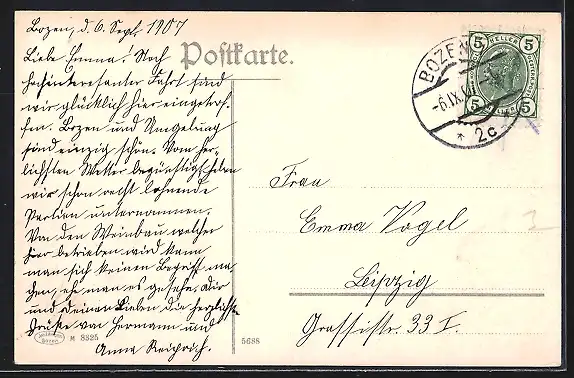 Bozen, d. 6. Sept. 1907
Postkarte.
Liebe Emma! Nach
hochinteressanter Fahrt sind
wir glücklich hier eingetrof-
fen. Bozen und Umgebung
sind einzig schön. Vom herr-
lichsten Wetter begünstigt, haben
wir schon recht lohnende
Partien unternommen.
Von den Weinbau, welcher
hier betrieben wird kann
man sich keinen Begriff ma-
chen, ehe man es gesehn. Dir
und Deinen Lieben die herzlichst.
Grüße von Hermann und
Anna
M 8525
5688
BOZEN
-6.IX.07
* 2c
5 HELLER 5
5 HELLER 5
Frau
Emma Vogel
Leipzig
Grassistr. 33 I.